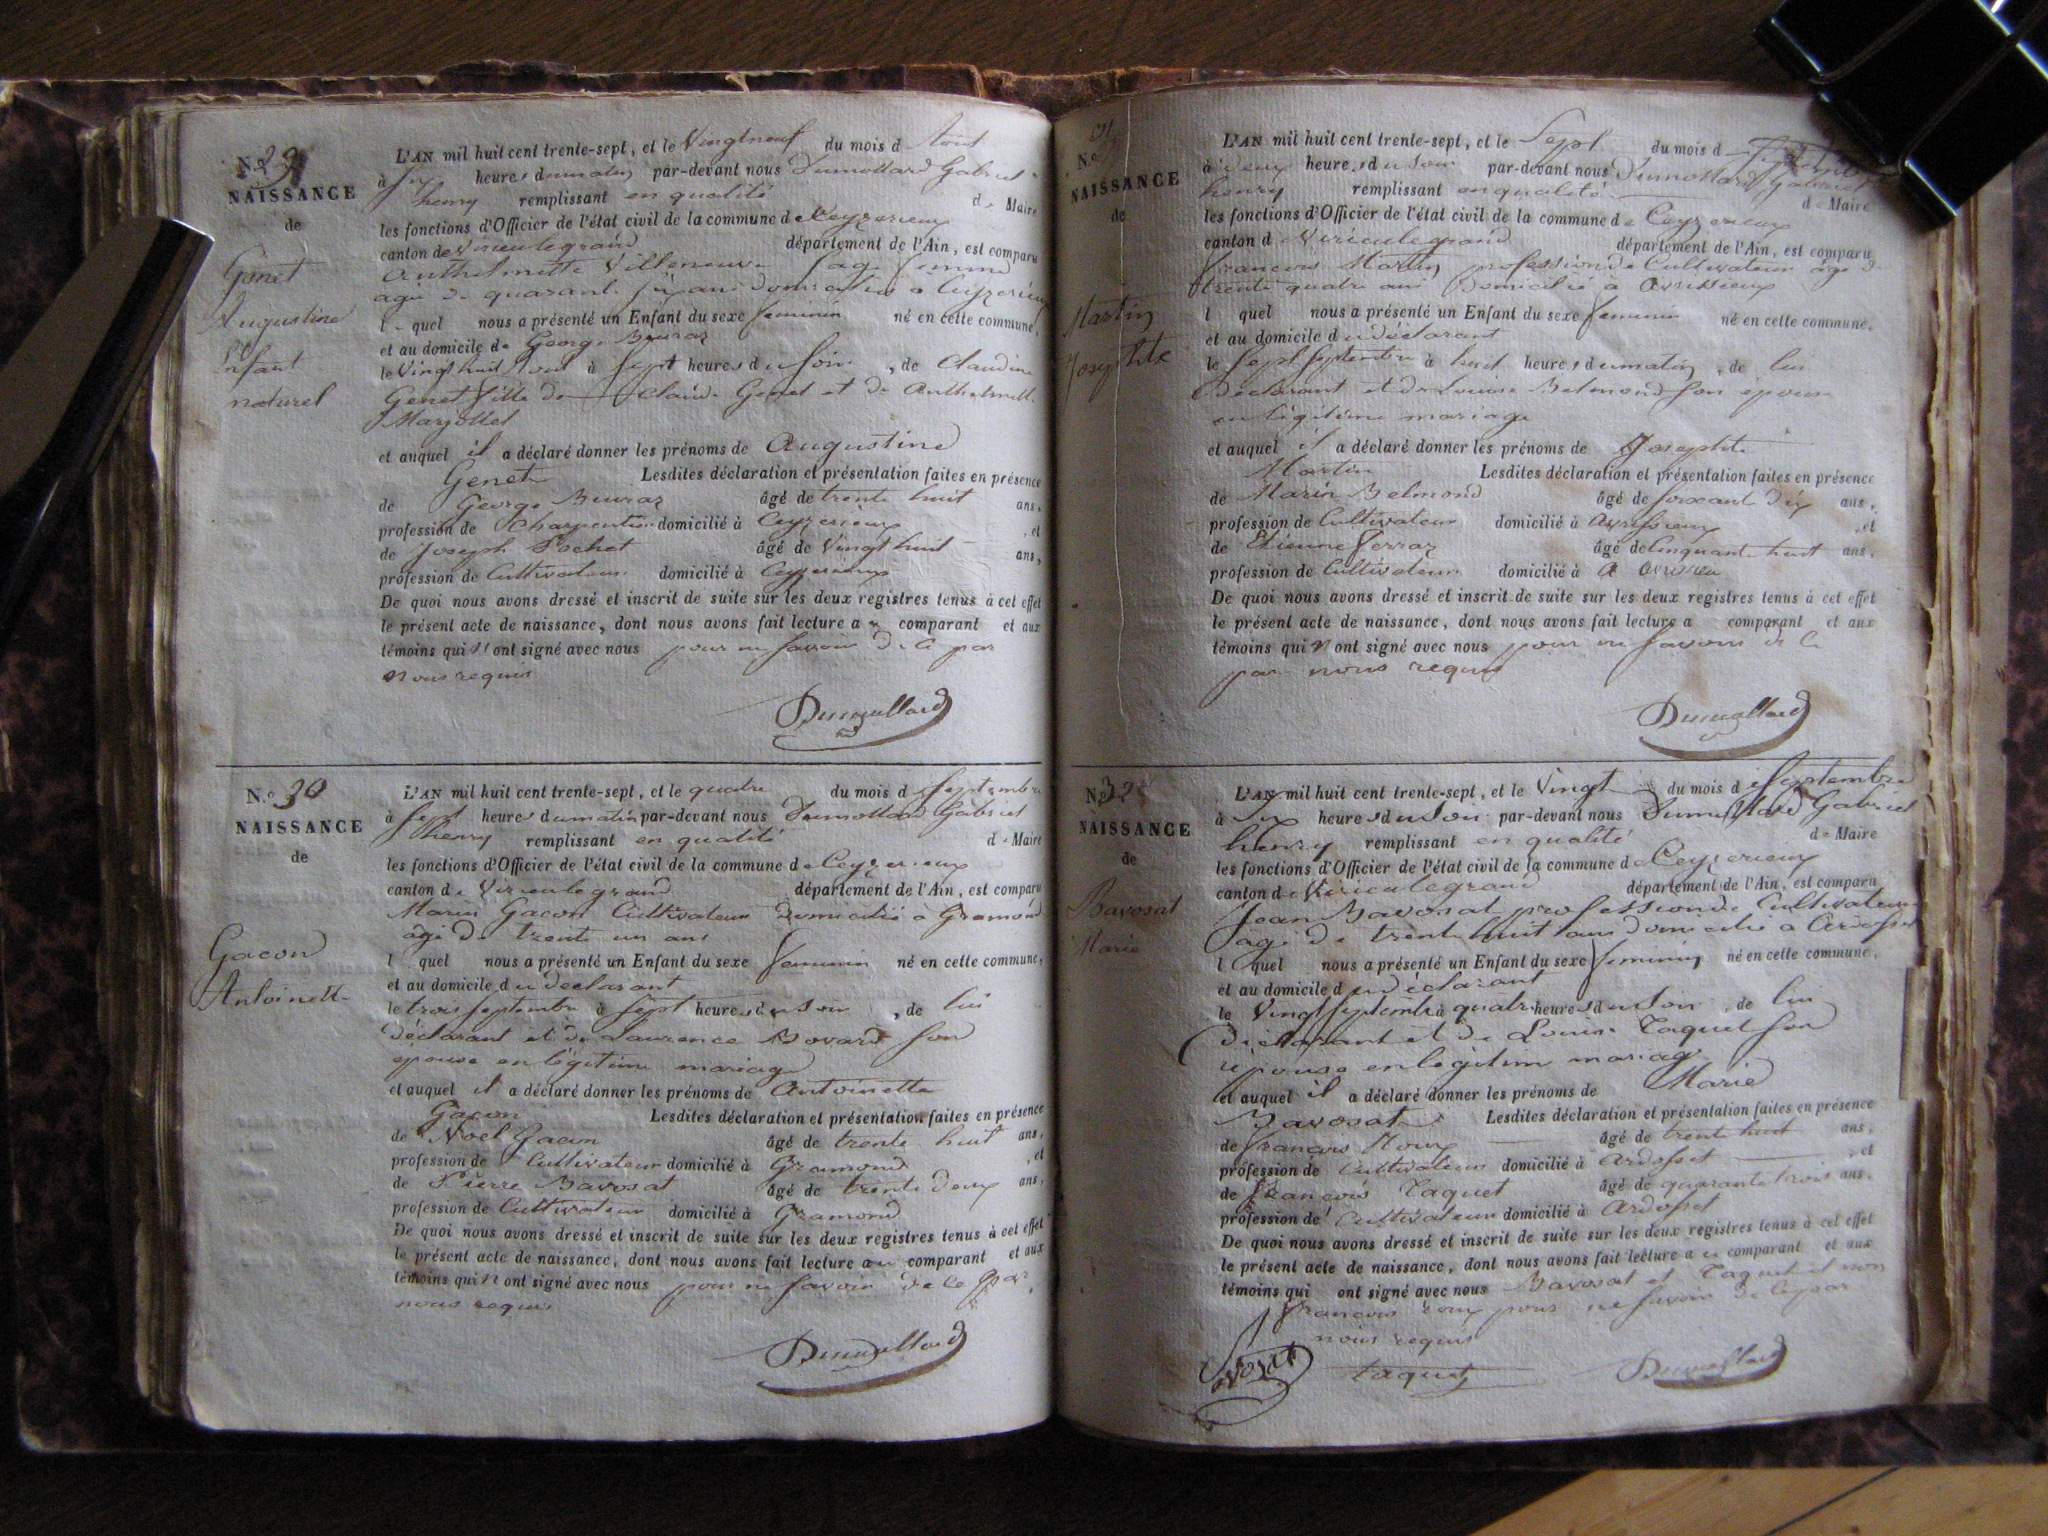 N.o 29
NAISSANCE
de
Genet
Augustine
Enfant
naturel
L'AN mil huit cent trente-sept, et le Vingtneuf du mois d Aout
à six heures du matin par-devant nous Dumollard Gabriel
henry remplissant en qualité de Maire
les fonctions d'Officier de l'état civil de la commune de Ceyzerieux
canton de Virieulegrand département de l'Ain, est comparu
Anthelmette Villeneuve sage femme
agée de quarante six ans domiciliée a Ceyzerieux
l quel nous a présenté un Enfant du sexe feminin né en cette commune,
et au domicile de George Beuraz
le Vingt huit Aout à sept heures du soir, de Claudine
Genet fille de Claude Genet et de Anthelmette
Marjollet
et auquel il a déclaré donner les prénoms de Augustine
Genet Lesdites déclaration et présentation faites en présence
de George Beuraz âgé de trente huit ans,
profession de Charpentier domicilié à Ceyzerieux, et
de Joseph Pochet âgé de Vingt huit ans,
profession de Cultivateur domicilié à Ceyzerieux
De quoi nous avons dressé et inscrit de suite sur les deux registres tenus à cet effet
le présent acte de naissance, dont nous avons fait lecture au comparant et aux
témoins qui n'ont signé avec nous pour ne savoir de ce par
nous requis
Dumollard
N.o 30
NAISSANCE
de
Gacon
Antoinette
L'AN mil huit cent trente-sept, et le quatre du mois d Septembre
à sept heures du matin par-devant nous Dumollard Gabriel
henry remplissant en qualité de Maire
les fonctions d'Officier de l'état civil de la commune de Ceyzerieux
canton de Virieulegrand département de l'Ain, est comparu
Marin Gacon Cultivateur domicilié à Gramond
agé de trente un ans
l quel nous a présenté un Enfant du sexe feminin né en cette commune,
et au domicile du declarant
le trois septembre à sept heures du soir, de lui
déclarant et de Laurence Bovard son
épouse en légitime mariage
et auquel il a déclaré donner les prénoms de Antoinette
Gacon Lesdites déclaration et présentation faites en présence
de Noel Gacon âgé de trente huit ans,
profession de Cultivateur domicilié à Gramond, et
de Pierre Bavosat âgé de trente deux ans,
profession de Cultivateur domicilié à Gramond
De quoi nous avons dressé et inscrit de suite sur les deux registres tenus à cet effet
le présent acte de naissance, dont nous avons fait lecture au comparant et aux
témoins qui n'ont signé avec nous pour ne savoir de ce par
nous requis
Dumollard
31
N.o
NAISSANCE
de
Martin
Josephte
L'AN mil huit cent trente-sept, et le Sept du mois d Septembre
à deux heures du soir par-devant nous Dumollard Gabriel
henry remplissant en qualité de Maire
les fonctions d'Officier de l'état civil de la commune de Ceyzerieux
canton d Virieulegrand département de l'Ain, est comparu
francois Martin profession de Cultivateur âgé de
trente quatre ans Domicilié à avrissieux
l quel nous a présenté un Enfant du sexe feminin né en cette commune,
et au domicile du déclarant
le sept septembre à huit heures du matin, de lui
Déclarant et de Louise Belmond son épouse
en légitime mariage
et auquel il a déclaré donner les prénoms de Josephte
Martin Lesdites déclaration et présentation faites en présence
de Marin Belmond âgé de soixante dix ans,
profession de Cultivateur domicilié à avrissieux, et
de Etienne Ferraz âgé de Cinquante huit ans,
profession de Cultivateur domicilié à
De quoi nous avons dressé et inscrit de suite sur les deux registres tenus à cet effet
le présent acte de naissance, dont nous avons fait lecture a comparant et aux
témoins qui n'ont signé avec nous pour ne savoir de ce
par nous requis
Dumollard
N.o 32
NAISSANCE
de
Bavosat
Marie
L'AN mil huit cent trente-sept, et le Vingt du mois de Septembre
à six heures du soir par-devant nous Dumollard Gabriel
henry remplissant en qualité de Maire
les fonctions d'Officier de l'état civil de la commune de Ceyzerieux
canton de Virieulegrand département de l'Ain, est comparu
Jean Bavosat profession de Cultivateur
agé de trente huit ans domicilié a Ardosset
l quel nous a présenté un Enfant du sexe feminin né en cette commune,
et au domicile du déclarant
le Vingt septembre à quatre heures du soir, de lui
déclarant et de Louise Taquet son
épouse en légitime mariage
et auquel il a déclaré donner les prénoms de Marie
Bavosat Lesdites déclaration et présentation faites en présence
de françois Roux âgé de trente huit ans,
profession de Cultivateur domicilié à Ardosset, et
de françois Taquet âgé de quarante trois ans,
profession de Cultivateur domicilié à Ardosset
De quoi nous avons dressé et inscrit de suite sur les deux registres tenus à cet effet
le présent acte de naissance, dont nous avons fait lecture au comparant et aux
témoins qui ont signé avec nous Bavosat et Taquet et non
francois Roux pour ne savoir de ce par
nous requis
taquet
Dumollard